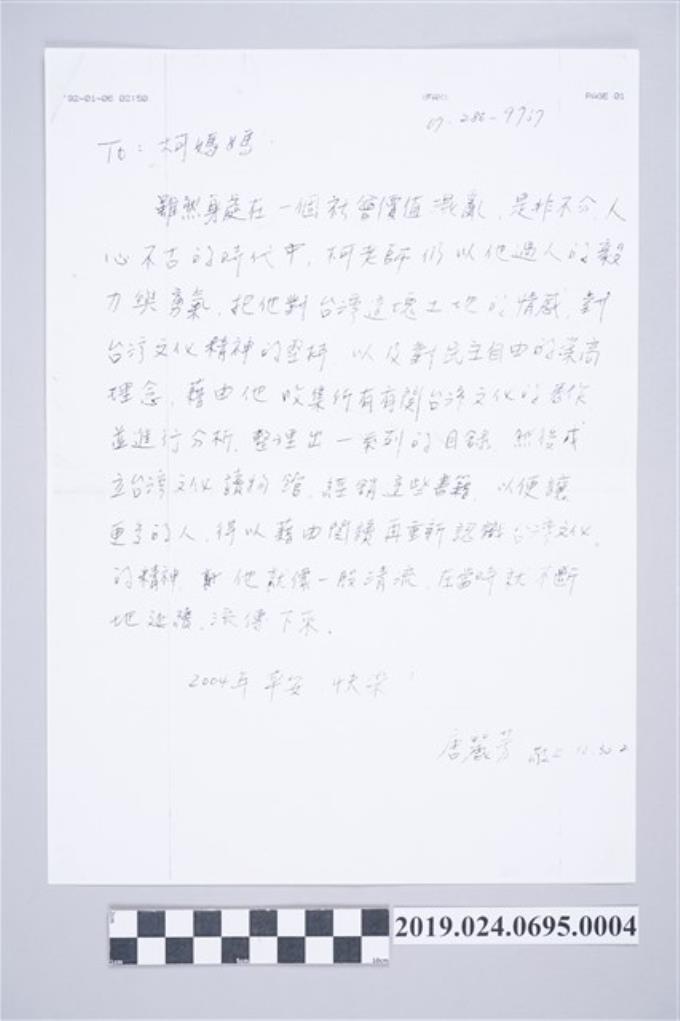 '92-01-06 02:50 (FAX) PAGE 01
07-286-9757
To: 柯媽媽.
雖然身處在一個社會價值混亂、是非不分、人
心不古的時代中, 柯老師仍以他過人的毅
力與勇氣, 把他對台湾這塊土地的情感, 對
台湾文化精神的堅持, 以及對民主自由的崇高
理念, 藉由他收集所有有関台湾文化的著作
並進行分析, 整理出一系列的目録, 然後成
立台湾文化讀物舘, 經銷這些書籍, 以便讓
更多的人, 得以藉由閱讀再重新認識台湾文化
的精神, 他就像一股清流, 在當時就不斷
地延續, 流傳下來.
2004年 平安 快樂!
唐麗芳 敬上
2019.024.0695.0004